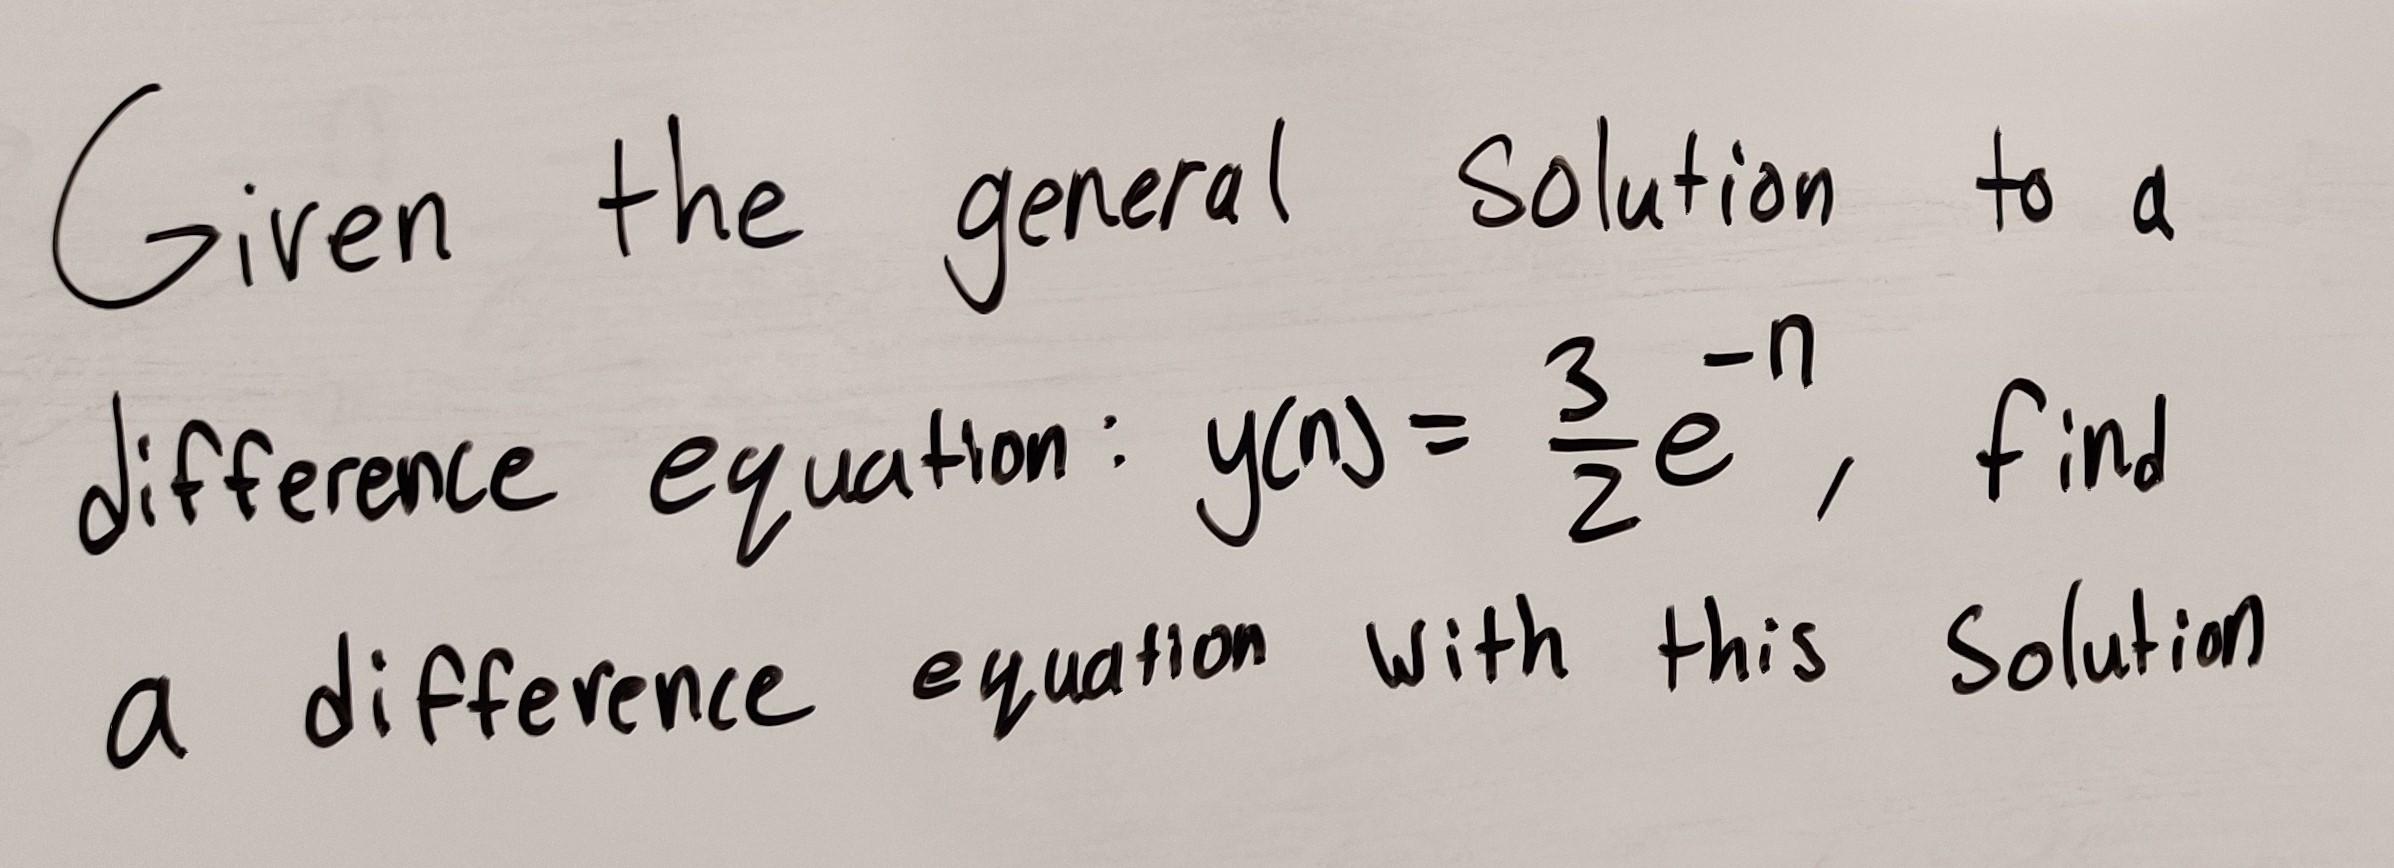 Given the general solution to a
difference equation: y(n) = 3/2 e^-n, find
a difference equation with this solution